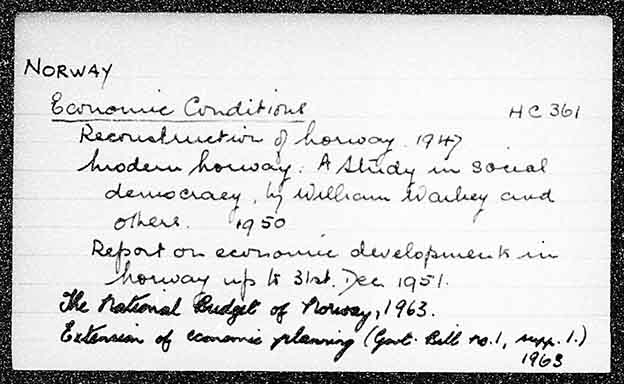 NORWAY
Economic Conditions HC 361
Reconstruction of Norway. 1947
Modern Norway: A study in social
democracy, by William Warbey and
others. 1950
Report on economic development in
Norway up to 31st. Dec 1951.
The National Budget of Norway, 1963.
Extension of economic planning (Govt. Bill no. 1, supp. 1.)
1963